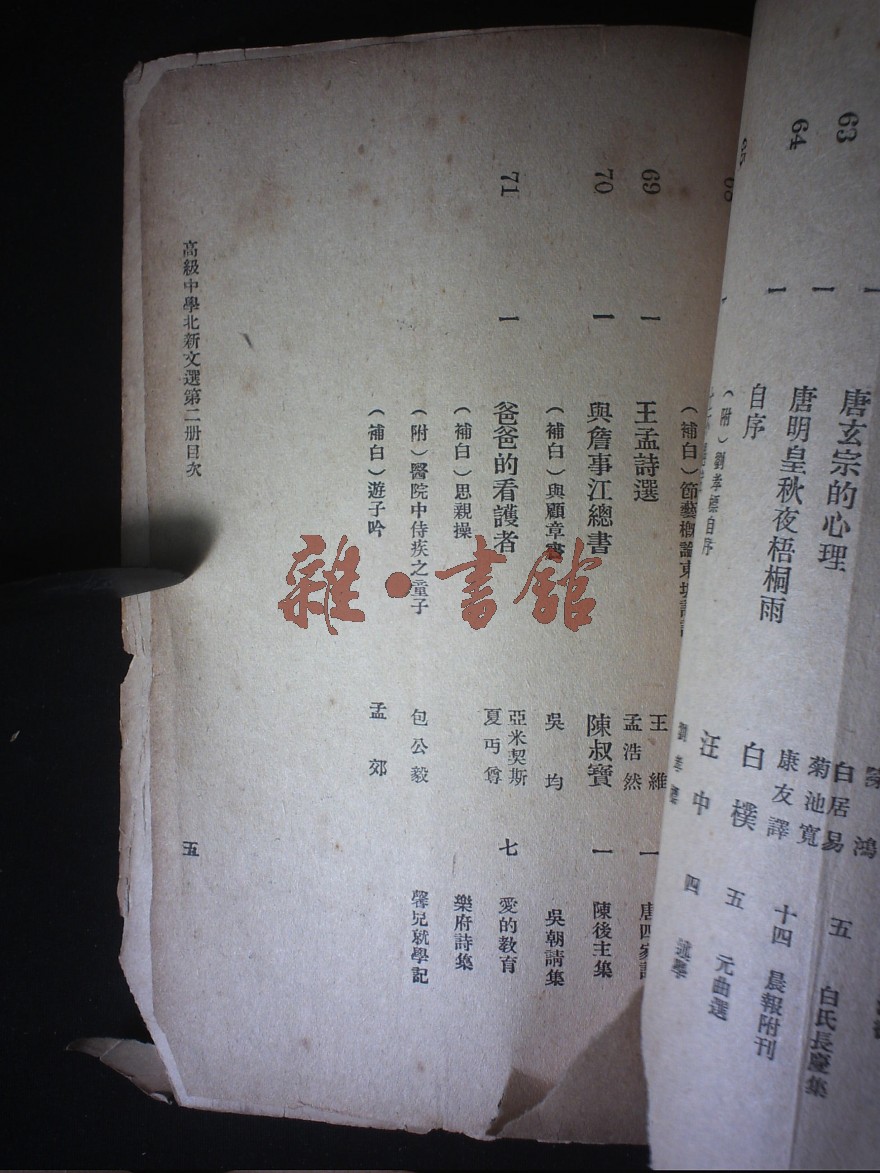 63 一 唐玄宗的心理 菊池寬 康友譯 十四 晨報附刊
64 一 唐明皇秋夜梧桐雨 白樸 五 元曲選
一 自序 汪中 四 述學
（附）劉孝標自序 劉孝標
（補白）節藝概論東坡詩
69 一 王孟詩選 王維 孟浩然 一 唐四家詩
70 一 與詹事江總書 陳叔寶 一 陳後主集
（補白）與顧章書 吳均 吳朝請集
71 一 爸爸的看護者 亞米契斯 夏丏尊 七 愛的教育
（補白）思親操 樂府詩集
（附）醫院中侍疾之童子 包公毅 馨兒就學記
（補白）遊子吟 孟郊
高級中學北新文選第二册目次
五
白居易 五 白氏長慶集
鴻
雜·書館